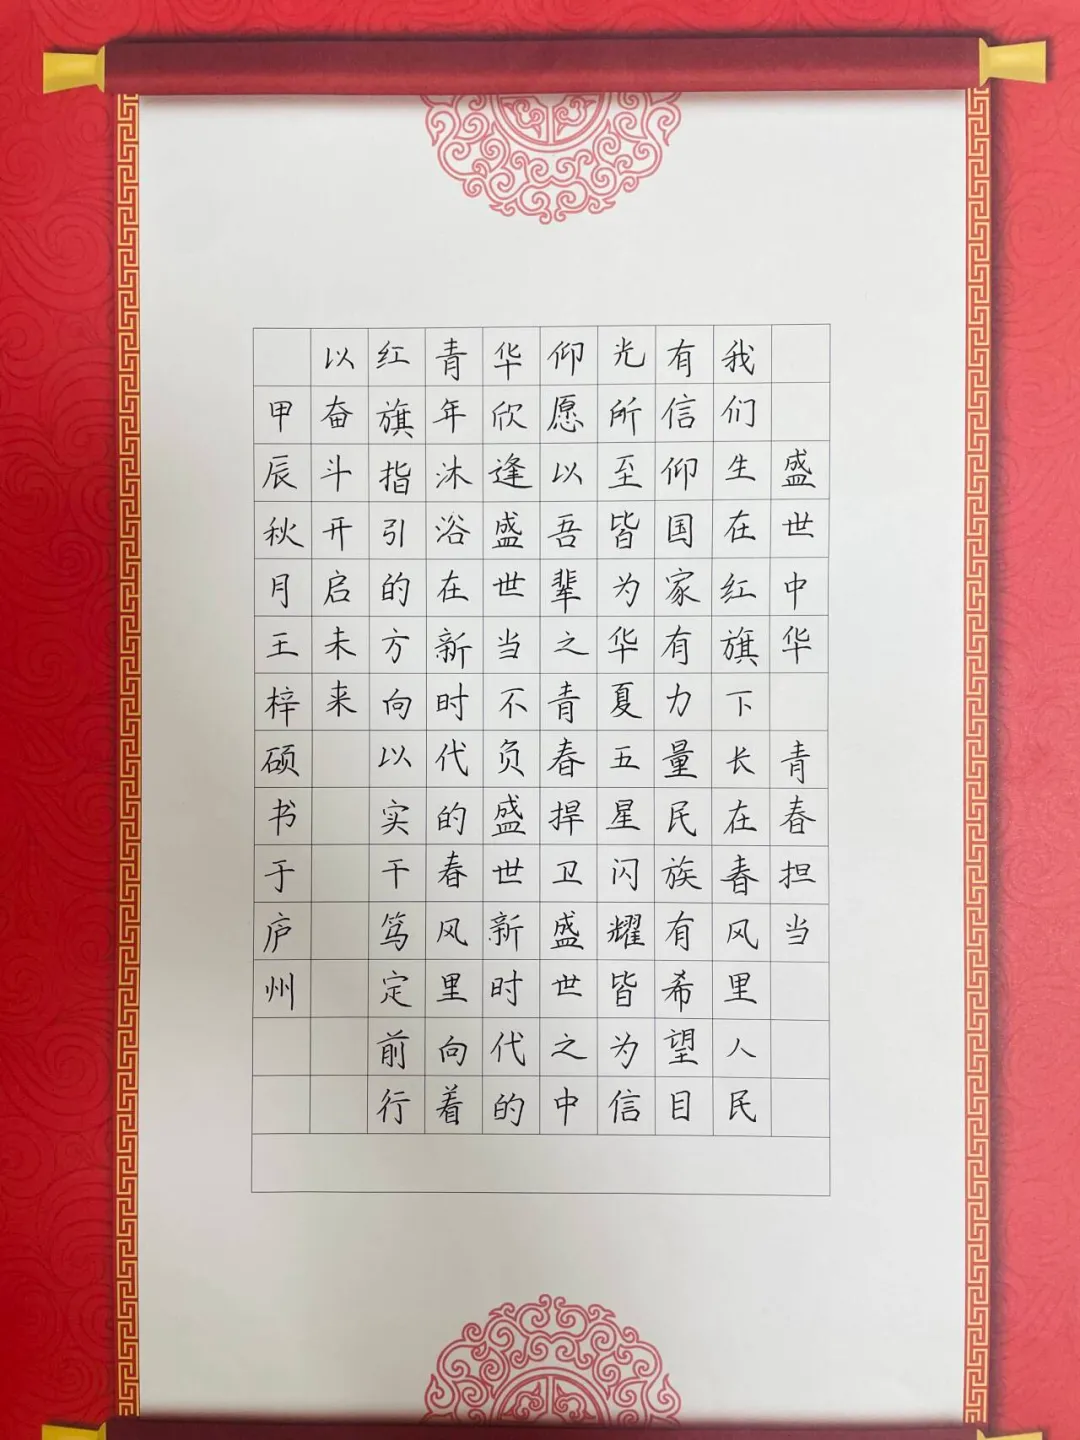 盛世中华 青春担当
我们生在红旗下长在春风里人民
有信仰国家有力量民族有希望目
光所至皆为华夏五星闪耀皆为信
仰愿以吾辈之青春捍卫盛世之中
华欣逢盛世当不负盛世新时代的
青年沐浴在新时代的春风里向着
红旗指引的方向以实干笃定前行
以奋斗开启未来
甲辰秋月王梓硕书于庐州